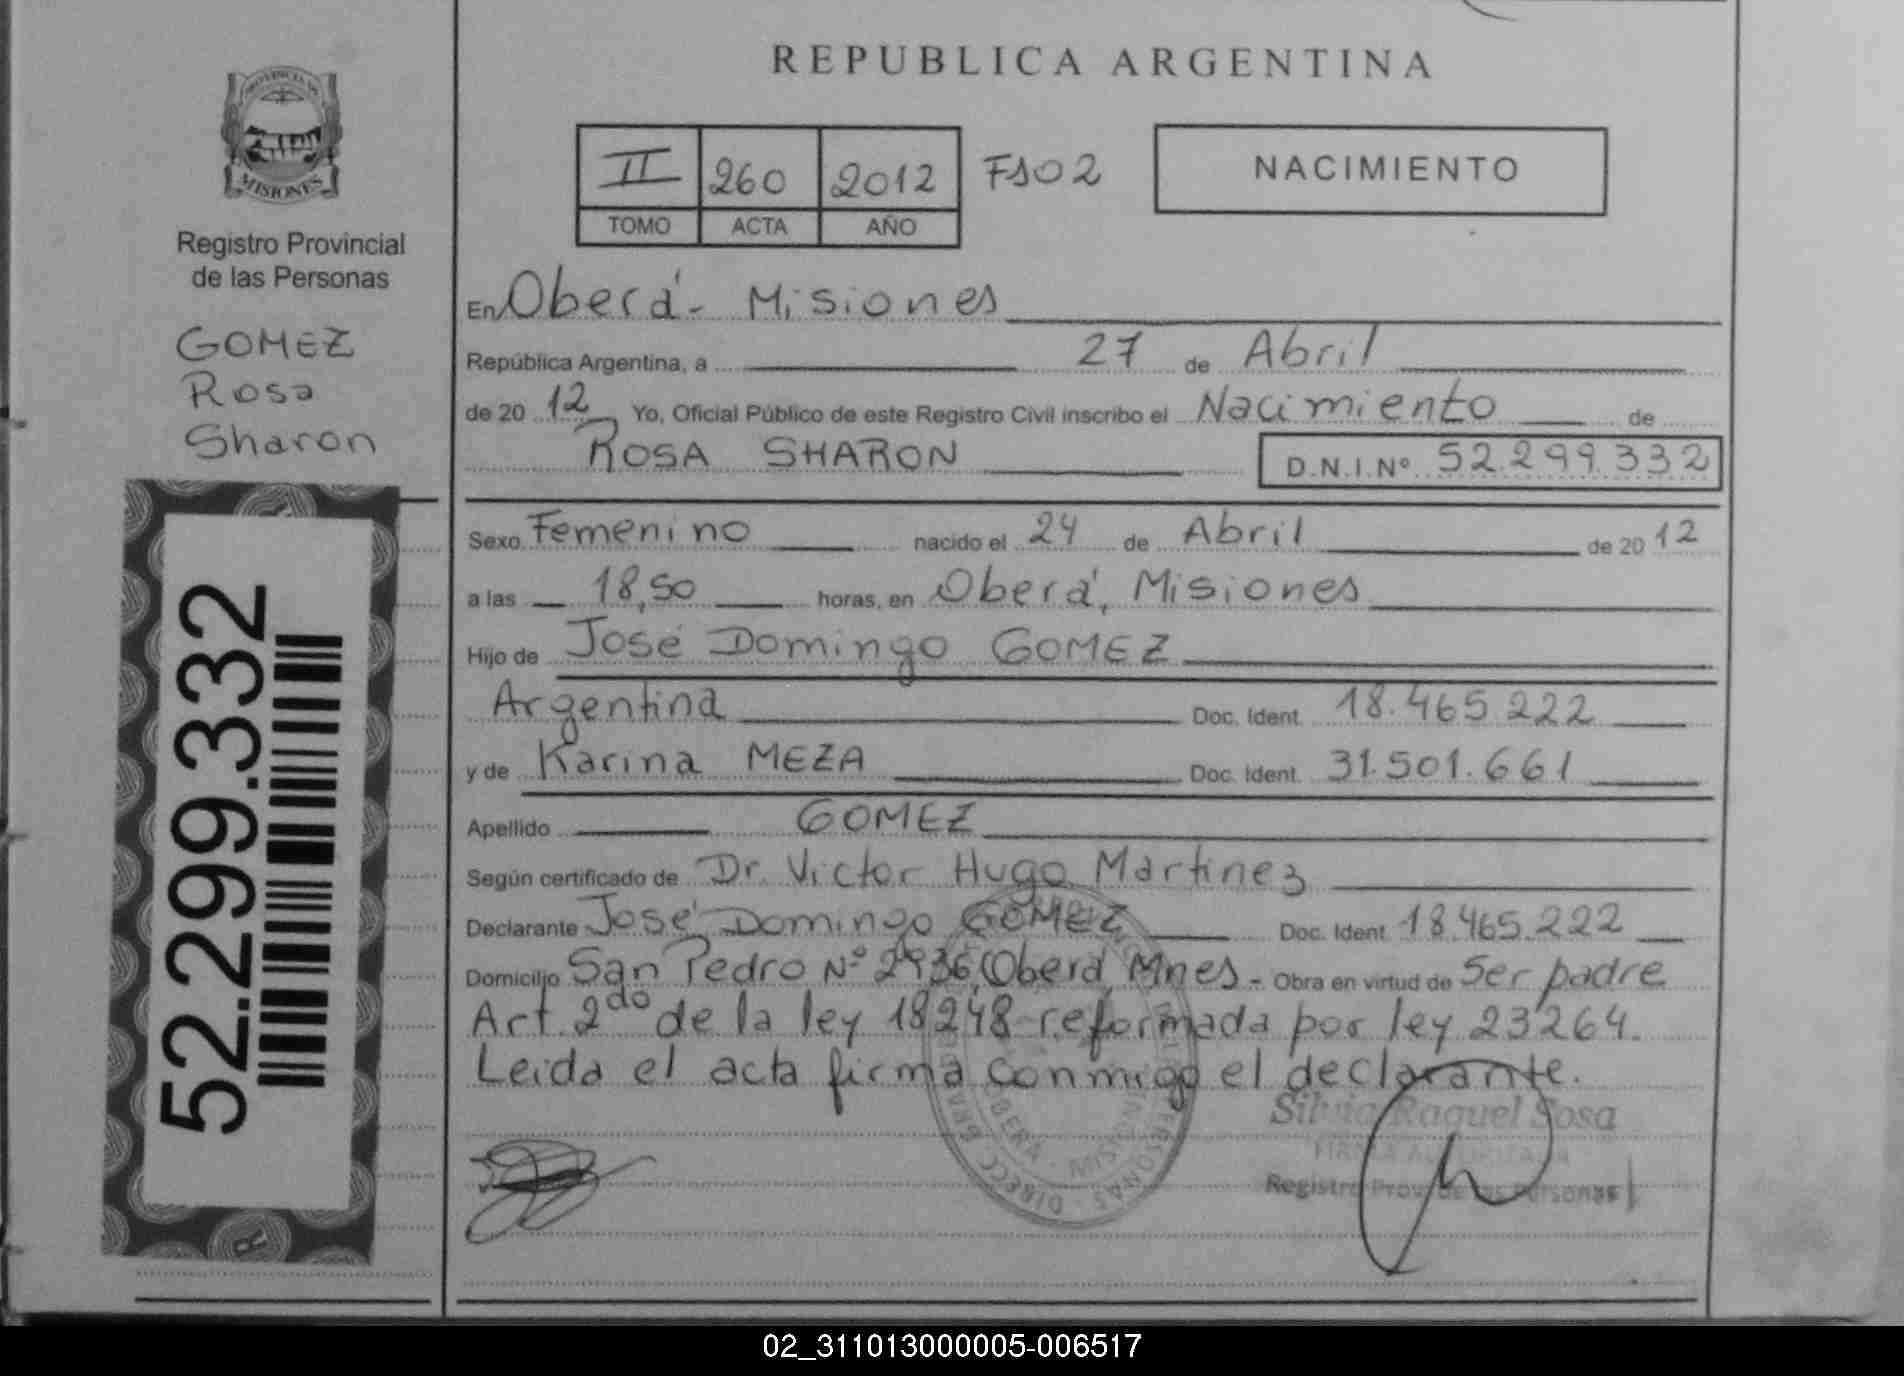 PROVINCIA DE
MISIONES
Registro Provincial
de las Personas
GOMEZ
Rosa
Sharon
52.299.332
REPUBLICA ARGENTINA
II 260 2012 FS02
TOMO ACTA AÑO
NACIMIENTO
En Oberá - Misiones
República Argentina, a 27 de Abril
de 20 12 Yo, Oficial Público de este Registro Civil inscribo el Nacimiento de
ROSA SHARON D.N.I.Nº 52.299.332
Sexo Femenino nacido el 24 de Abril de 20 12
a las 18,50 horas, en Oberá, Misiones
Hijo de José Domingo GOMEZ
Argentina Doc. Ident. 18.465.222
y de Karina MEZA Doc. Ident. 31.501.661
Apellido GOMEZ
Según certificado de Dr. Victor Hugo Martinez
Declarante José Domingo GOMEZ Doc. Ident 18.465.222
Domicilio San Pedro Nº 2936, Oberá, Mnes.- Obra en virtud de Ser padre
Art. 2do de la ley 18248 reformada por ley 23264.
Leida el acta firma conmigo el declarante.
Silvia Raquel Sosa
FIRMA AUTORIZADA
Registro Prov. de las Personas
OBERA - MISIONES
02_311013000005-006517